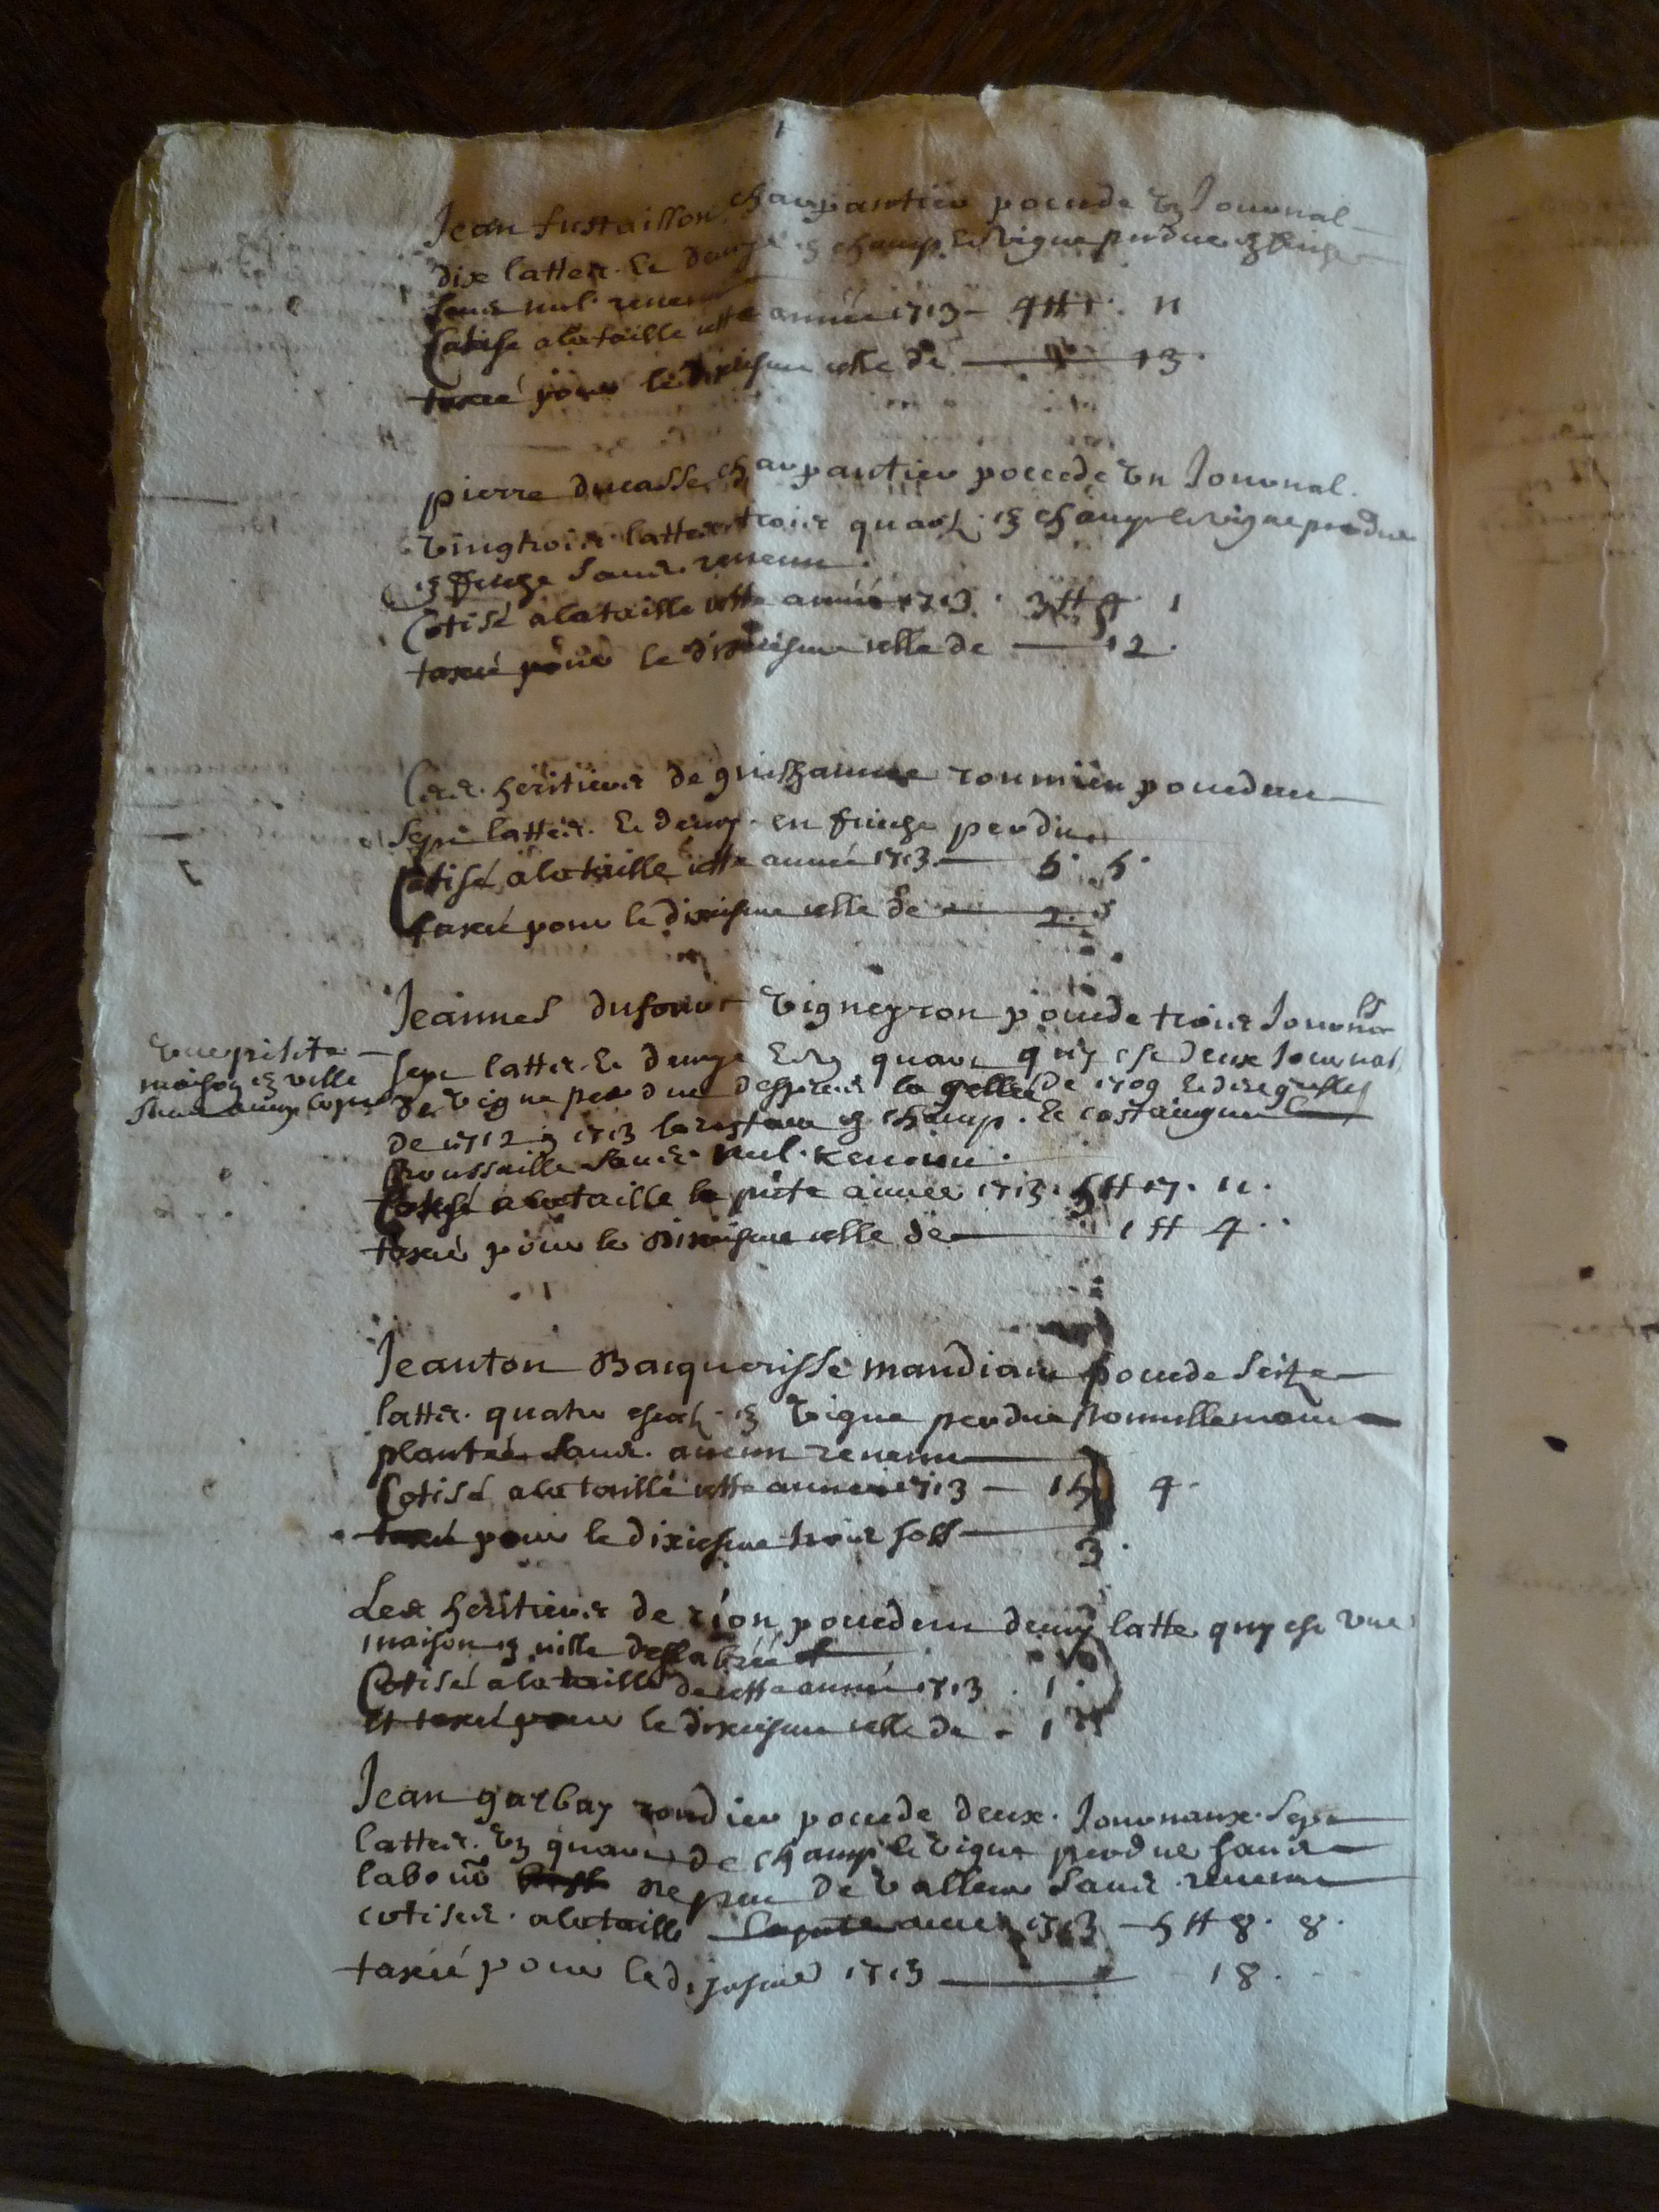 Jean fustaillon charpantier pocede un Journal
dix lattes. Et demye en champ Et vigne perdue en friche
sans nul. revenu
Cotise a la taille cette année 1713 - 4 ₶ 1. 11
taxcé pour le dixiesme celle de 13.
pierre ducasse charpantier pocede un Journal.
vingtrois lattes trois quarts. en champ et vigne perdue
en friche sans. revenu.
Cotisé a la taille cette année 1713. 3 ₶ 1
taxcé pour le dixiesme celle de 12.
Les. heritiers de guilhaume roumieu pocedent
sept lattes. Et demy. en friche perdue
Cotisé a la taille cette année 1713 5. 5.
taxcé pour le dixiesme celle de 2. 5
Jeannes dufour vigneyron pocede trois Journx
une petite
maison en ville
sept lattes. Et demye Et un quart quy est deux Journal
de vigne perdue despuis la gellée de 1709 Et de
de 1712 1713 le restant en champ. Et
broussaille sans. nul. Revenu.
Cotisé a la taille la pnte année 1713. 5 ₶ 17. 11.
taxcé pour le dixiesme celle de 1 ₶ 4.
Jeanton Bacquerisse mandiant pocede seitze
lattes. quatre escatz. en vigne perdue nouvellement
plantée sans. aucun revenu
Cotisé a la taille cette année 1713 - 15 4.
taxcé pour le dixiesme trois solz 3.
Les heritiers de rion pocedent demy latte quy est une
maison en ville deslabrée
Cotisé a la taille de cette année 1713. 1.
Et taxcé pour le dixiesme celle de - 1
Jean garbay pocede deux. Journaux. sept
lattes. un quart de champ et vigne perdue sans
labour de peu de valleur sans. revenu
cotisés. a la taille la pnte année 1713 - 5 ₶ 8. 8.
taxcé pour le dixiesme 1713 18.